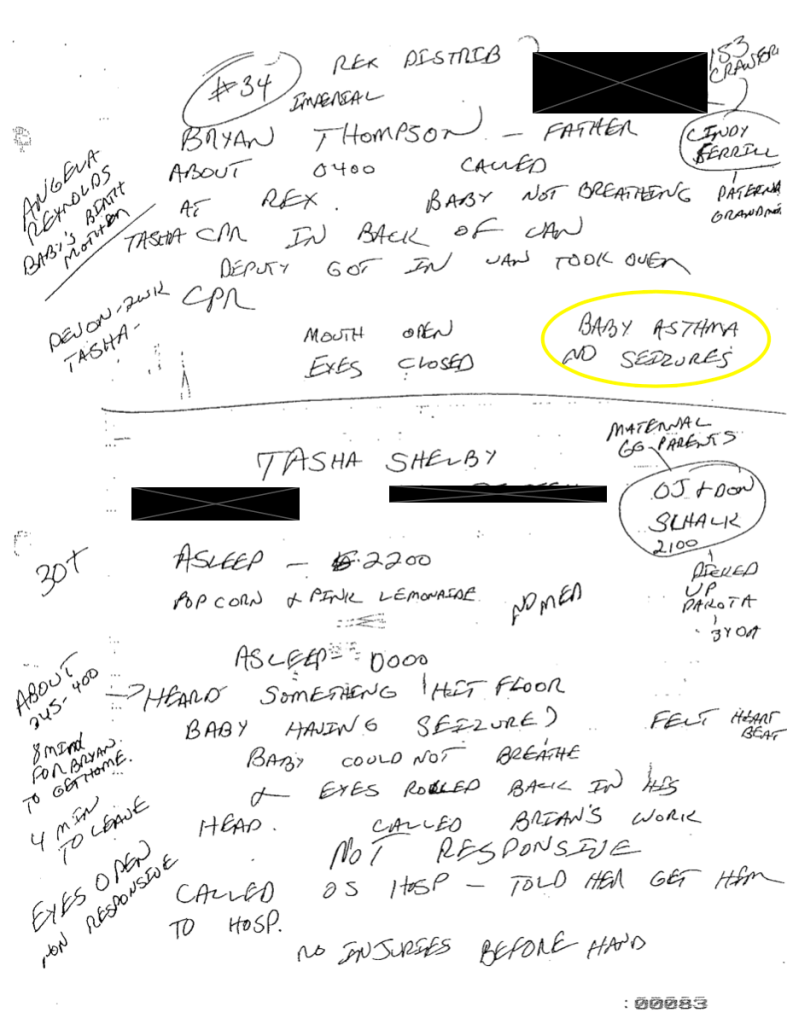 #34
REX DISTRIB
IMPERIAL
153
CRAWFER
BRYAN THOMPSON - FATHER
CINDY
PATERNAL
GRANDMO
ANGELA
REYNOLDS
BABY'S BIRTH
MOTHER
ABOUT 0400 CALLED
AT REX. BABY NOT BREATHING
TASHA CPR IN BACK OF VAN
DEPUTY GOT IN VAN TOOK OVER
CPR
DEVON-2WK
TASHA-
MOUTH OPEN
EYES CLOSED
BABY ASTHMA
NO SEIZURES
TASHA SHELBY
MATERNAL
GG-PARENTS
OJ & DON
SCHALK
2100
PICKED
UP
DAKOTA
3YOA
30+
ASLEEP - 2200
POPCORN & PINK LEMONAIDE NO MED
ASLEEP - 0000
ABOUT
345-400
→ HEARD SOMETHING HIT FLOOR
BABY HAVING SEIZURE) FELT HEART
BEAT
8 MIN
FOR BRYAN
TO GET HOME.
BABY COULD NOT BREATHE
& EYES ROLLED BACK IN HIS
HEAD. CALLED BRIAN'S WORK
4 MIN
TO LEAVE
NOT RESPONSIVE
EYES OPEN
NON RESPONSIVE
CALLED OS HOSP - TOLD HER GET HIM
TO HOSP.
NO INJURIES BEFORE HAND
:00083